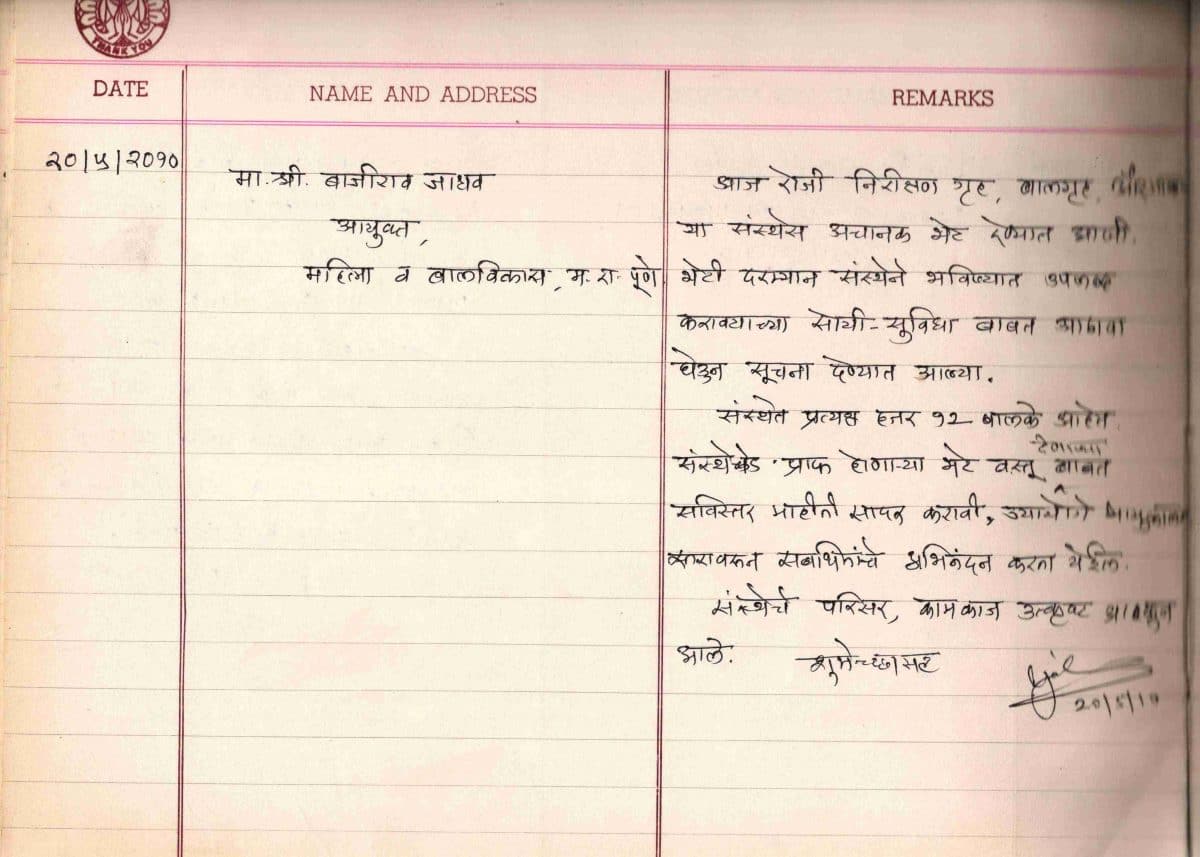 THANK YOU
DATE NAME AND ADDRESS REMARKS
२०/५/२०१०
मा. श्री. बाजीराव जाधव
आयुक्त,
महिला व बालविकास, म. रा. पूणे
आज रोजी निरीक्षण गृह, बालगृह,
या संस्थेस अचानक भेट देण्यात आली.
भेटी दरम्यान संस्थेने भविष्यात उपलब्ध
करावयाच्या सोयी-सुविधा बाबत आढावा
घेऊन सूचना देण्यात आल्या.
संस्थेत प्रत्यक्ष हजर १२ बालके आहेत.
संस्थेकडे प्राप्त होणाऱ्या भेट वस्तू देणाऱ्या बाबत
सविस्तर माहीती सादर करावी, ज्यायोगे
अभिनंदन करता येईल.
संस्थेचे परिसर, कामकाज उत्कृष्ट आढळून
आले. शुभेच्छासह
20/5/10